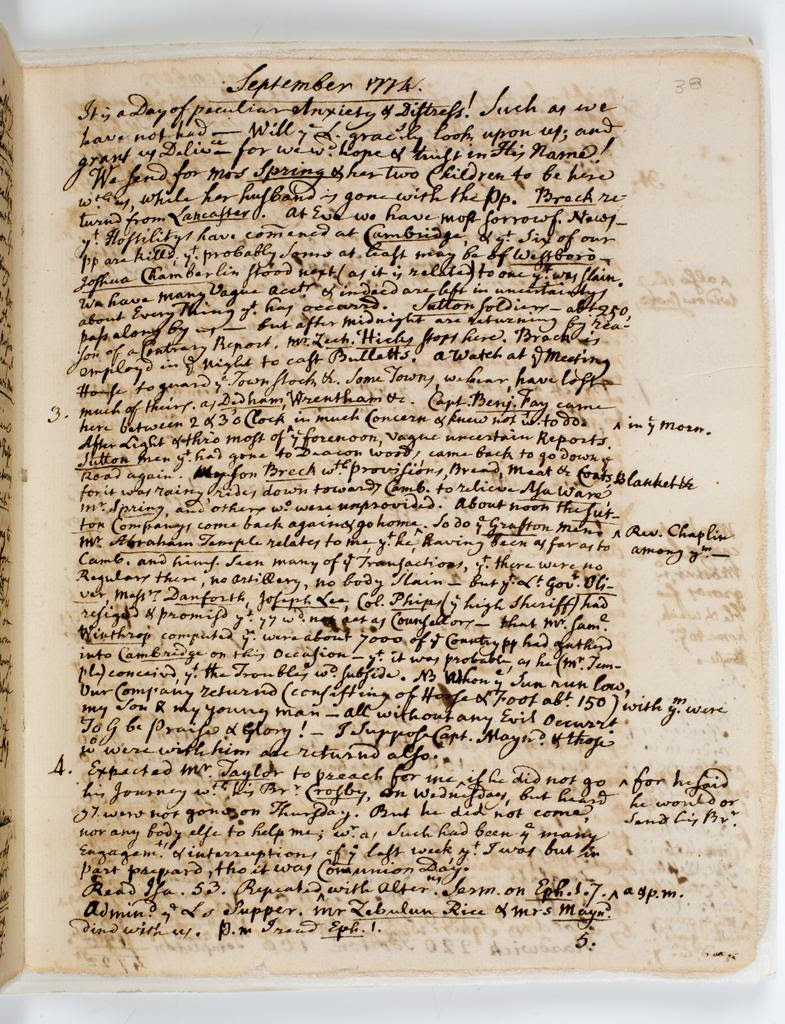 38
September 1774.
It is a Day of peculiar Anxiety & Distress! Such as we
have not had — Will ye L. gracsly look upon us, and
grant us Delivce for we wd hope & trust in His Name!
We send for mrs Spring & her two Children to be here
wth us, while her husband is gone with the pp. Breck re-
turnd from Lancaster. At Eve we have most sorrowf. News —
yt Hostilitys have comenced at Cambridge & yt Six of our
pp are killd; yt probably some at least may be of Westboro —
Joshua Chamberlin stood next (as it is related) to one yt was slain.
We have many Vague acctts & indeed are left in uncertainty
about Every Thing yt has occurrd. Sutton soldiers — abt 250,
pass along by us — but after midnight are returning by rea-
son of a Contrary Report. mr. Zech. Hicks stops here. Breck is
employd in ye Night to cast Bulletts. a Watch at ye Meeting
House to guard ye Town stock &c. Some Towns, we hear, have lost
much of theirs, as Dedham, Wrentham &c. Capt. Benj. Fay came
3. here between 2 & 3 o'Clock in much Concern & knew not wt to do
After Light & thro most of ^ ye forenoon, vague uncertain Reports. ^ in ye morn.
Sutton men yt had gone to Deacon woods, came back to go down ye
Road again. My son Breck wth provisions, Bread, meat &c Coats, Blankets &c
for it was rainy rides down towards Camb. to relieve Asa Ware,
mr. Spring, and others wo were unprovided. About noon the Sut-
ton Companys come back again & go home. So do ye Grafton men ^ ^ Rev. Chaplin among ym —
Mr. Abraham Temple relates to me, yt he having been as far as to
Camb. and hims. Seen many of ye Transactions, yt there were no
Regulars there, no Artillery, no body Slain — but yt Lt. Govr. Oli-
ver, Messrs. Danforth, Joseph Lee, Col. Phips (ye high Sheriff) had
resignd & promisd yt yy wd not act as Counsellors — that Mr. Saml.
Winthrop computed yt were about 7000 of ye Country pp had gatherd
into Cambridge on this Occasion — yt it was probable, as he (Mr. Tem-
ple) conceivd, yt the Troubles wd subside. NB When ye Sun run low,
Our Company returnd (consisting of Horse & Foot abt. 150) with ym were
my Son & my young man — all without any Evil Occurrt
To G be Praise & Glory! — I Suppose Capt. Maynd. & those
wo were with him are returnd also.
4. Expected Mr. Taylor to preach for me, if he did not go ^ for he said he would or send his Br.
his Journey wth his Br. Crosby, on Wednesday, but heard
yy were not gone on Thursday. But he did not come,
nor any body else to help me; wras Such had been ye many
Engagemts. & interruptions of ye last week yt I was but in
part prepard, tho it was Comunion Day.
Read Isa. 53. Repeated, with Alterns, Serm. on Eph. 1. 7. ^ a & p.m.
Admind ye Ls Supper. mr Zebulun Rice & mrs Maynd
dind with us. P.m I read Eph. 1.
5.